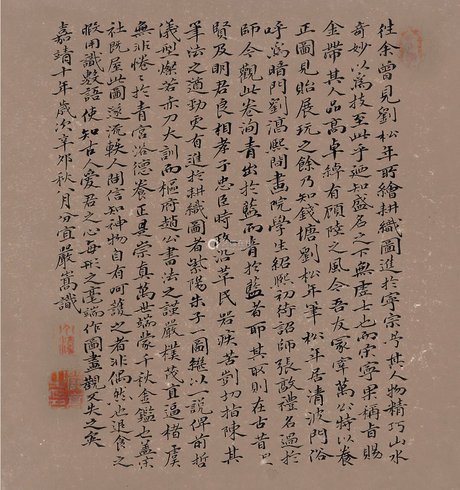 往余曾見劉松年所繪耕織圖進於寧宗其人物精巧山水
奇妙以為技至此乎廼知盛名之下無虛士也而宋寧果稱旨賜
金帶其人品高卓綽有顧陸之風今吾友冢宰萬公特以養
正圖見貽展玩之餘乃知錢塘劉松年筆松年居清波門俗
呼為暗門劉淳熙間畫院學生紹熙初待詔師張敦禮名過於
師今觀此卷洵青出於藍而青於藍者耶其取則在古昔
賢及明君良相孝子忠臣時政沿革民若疾苦剴切指陳其
筆法之遒勁更有進於耕織圖者紫陽朱子一圖繼以一說俾前哲
儀型燦若赤刀大訓而樞府趙公書法之謹嚴樸茂宜逼楮虞
無非惓惓於青宮治德養正宗真萬世端蒙千秋金鑑也蓋宋
社既屋此圖遂流軼人間信知神物自有呵護之者非偶然也退食之
暇用識數語使知古人愛君之心每形之毫端作圖畫觀又失之矣
嘉靖十年歲次辛卯秋月分宜嚴嵩識